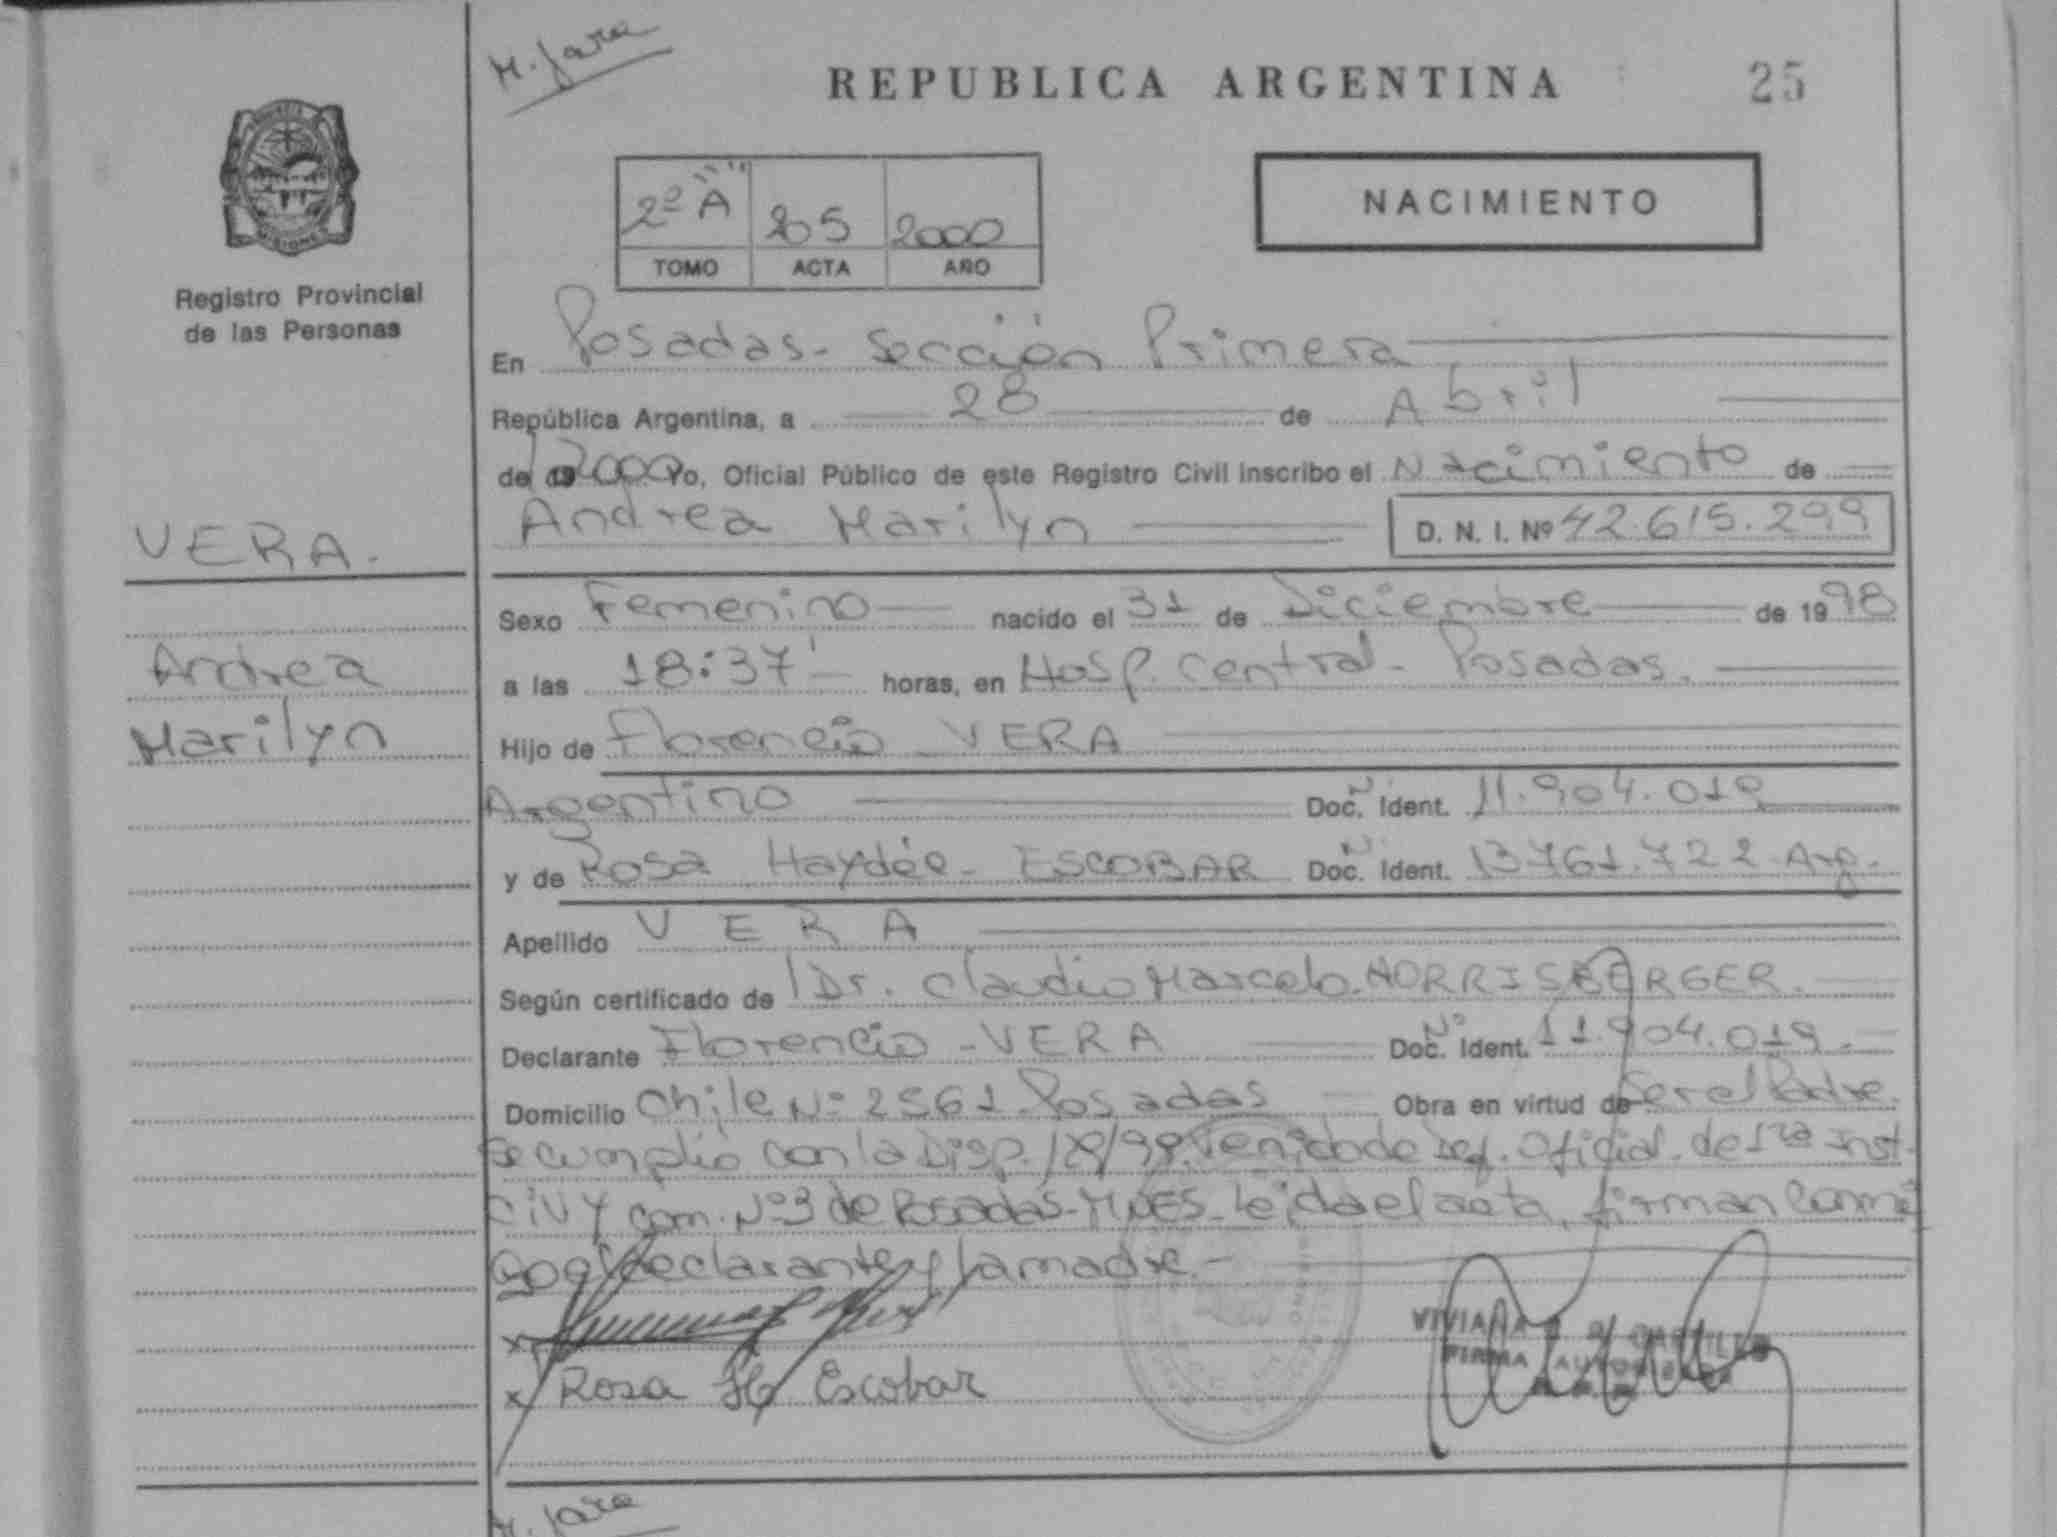 M. Jara
REPUBLICA ARGENTINA 25
MISIONES
Registro Provincial
de las Personas
2º "A" 205 2000
TOMO ACTA AÑO
NACIMIENTO
En Posadas - Sección Primera
República Argentina, a 28 de Abril
de 2000 Yo, Oficial Público de este Registro Civil inscribo el Nacimiento de
VERA.
Andrea Marilyn D. N. I. Nº 42.615.299
Sexo Femenino nacido el 31 de Diciembre de 1998
Andrea
a las 18:37' horas, en Hosp. Central - Posadas.
Marilyn
Hijo de Florencio VERA
Argentino Doc. Nº Ident. 11.904.019
y de Rosa Haydée - ESCOBAR Doc. Nº Ident. 13761.722 Arg.
Apellido VERA
Según certificado de Dr. Claudio Marcelo HORRISBERGER.
Declarante Florencio - VERA Doc. Nº Ident. 11.904.019.-
Domicilio Chile Nº 2561 Posadas Obra en virtud de Ser el Padre.
Se cumplió con la Disp. 18/98. Venido de Def. Oficial de 1ra Inst.
CIV y com. Nº 3 de Posadas - MNES - Leida el acta, firman conmi
go el declarante y la madre.-
x
x Rosa H. Escobar
VIVIANA CASTILLO
FIRMA AUTORIZADA
M. Jara